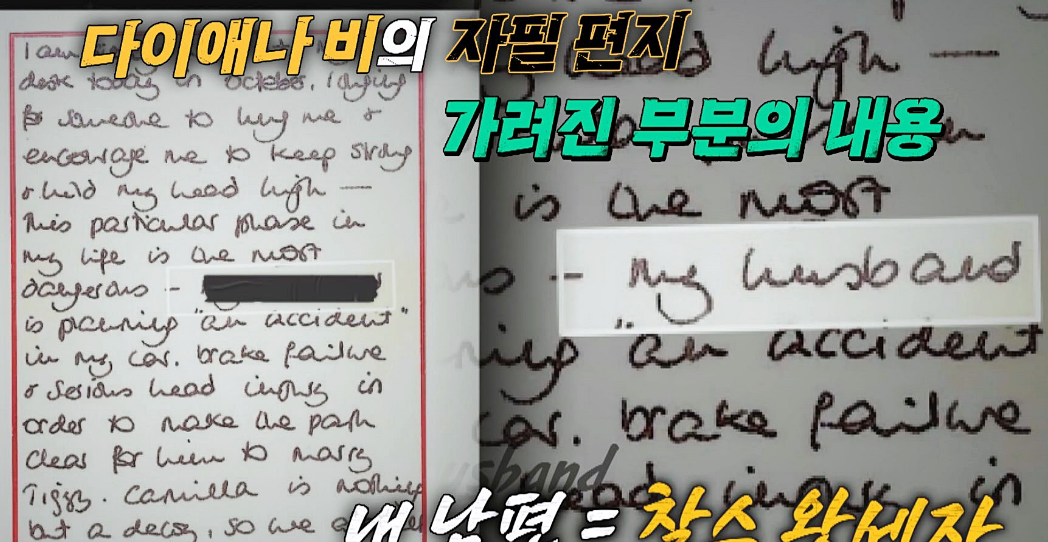 다이애나 비의 자필 편지
가려진 부분의 내용
desk today in October, longing
for someone to hug me &
encourage me to keep strong
& hold my head high —
This particular phase in
my life is the most
dangerous –
is planning "an accident"
in my car. brake failure
& serious head injury in
order to make the path
clear for him to marry
Tiggy. Camilla is nothing
but a decoy, so we
head high —
is the most
– my husband
"an accident
car. brake failure
head injury in
usband
내 남편 = 찰스 왕세자